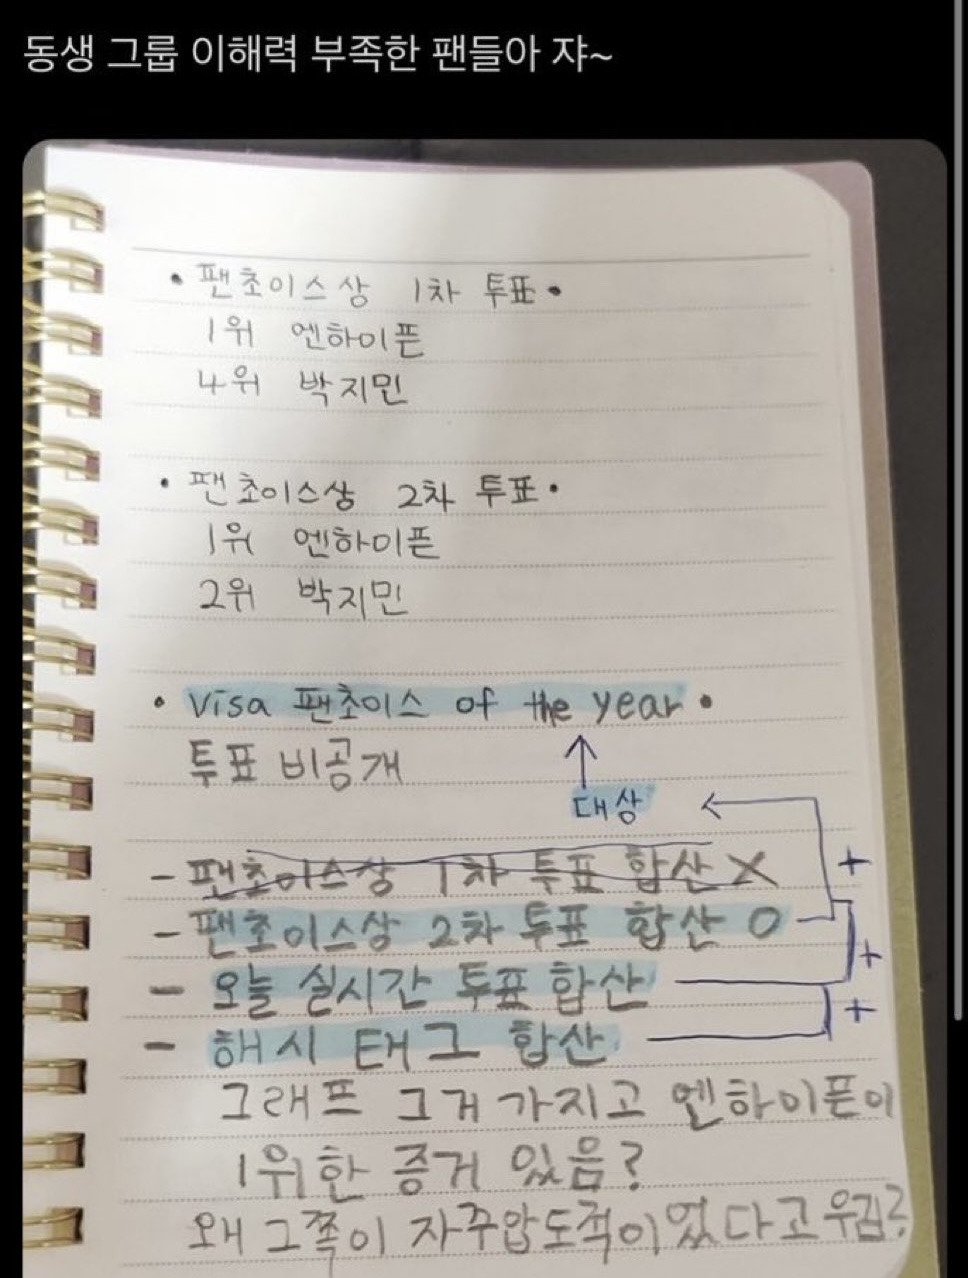 동생 그룹 이해력 부족한 팬들아 쟈~
• 팬초이스상 1차 투표 •
1위 엔하이픈
4위 박지민
• 팬초이스상 2차 투표 •
1위 엔하이픈
2위 박지민
• Visa 팬초이스 of the year •
투표 비공개
↑
대상 ←
- 팬초이스상 1차 투표 합산 X +
- 팬초이스상 2차 투표 합산 O +
- 오늘 실시간 투표 합산 +
- 해시태그 합산
그래프 그거 가지고 엔하이픈이
1위한 증거 있음?
왜 그쪽이 자꾸 압도적이었다고 우김?